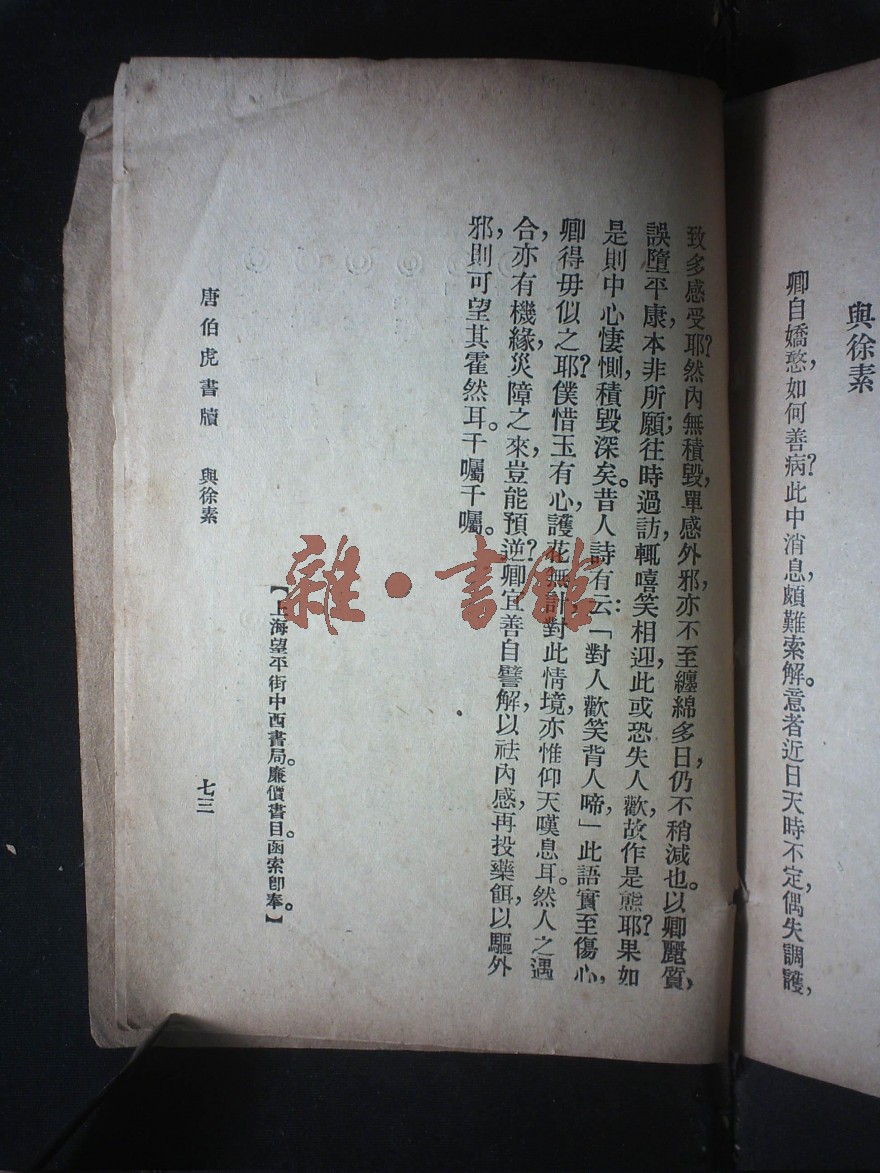 與徐素
卿自嬌憨，如何善病？此中消息，頗難索解。意者近日天時不定，偶失調護，
致多感受耶？然內無積毀，單感外邪，亦不至纏綿多日，仍不稍減也。以卿麗質，
誤墮平康，本非所願；往時過訪，輒嘻笑相迎，此或恐失人歡，故作是態耶？果如
是，則中心悽惻，積毀深矣。昔人詩有云：「對人歡笑背人啼，」此語實至傷心，
卿得毋似之耶？僕惜玉有心，護花無計，對此情境，亦惟仰天嘆息耳。然人之遇
合，亦有機緣，災障之來，豈能預逆？卿宜善自譬解，以祛內感，再投藥餌，以驅外
邪，則可望其霍然耳。千囑千囑。
【上海望平街中西書局。廉價書目。函索卽奉。】
唐伯虎書牘　與徐素
七三
雜·書館